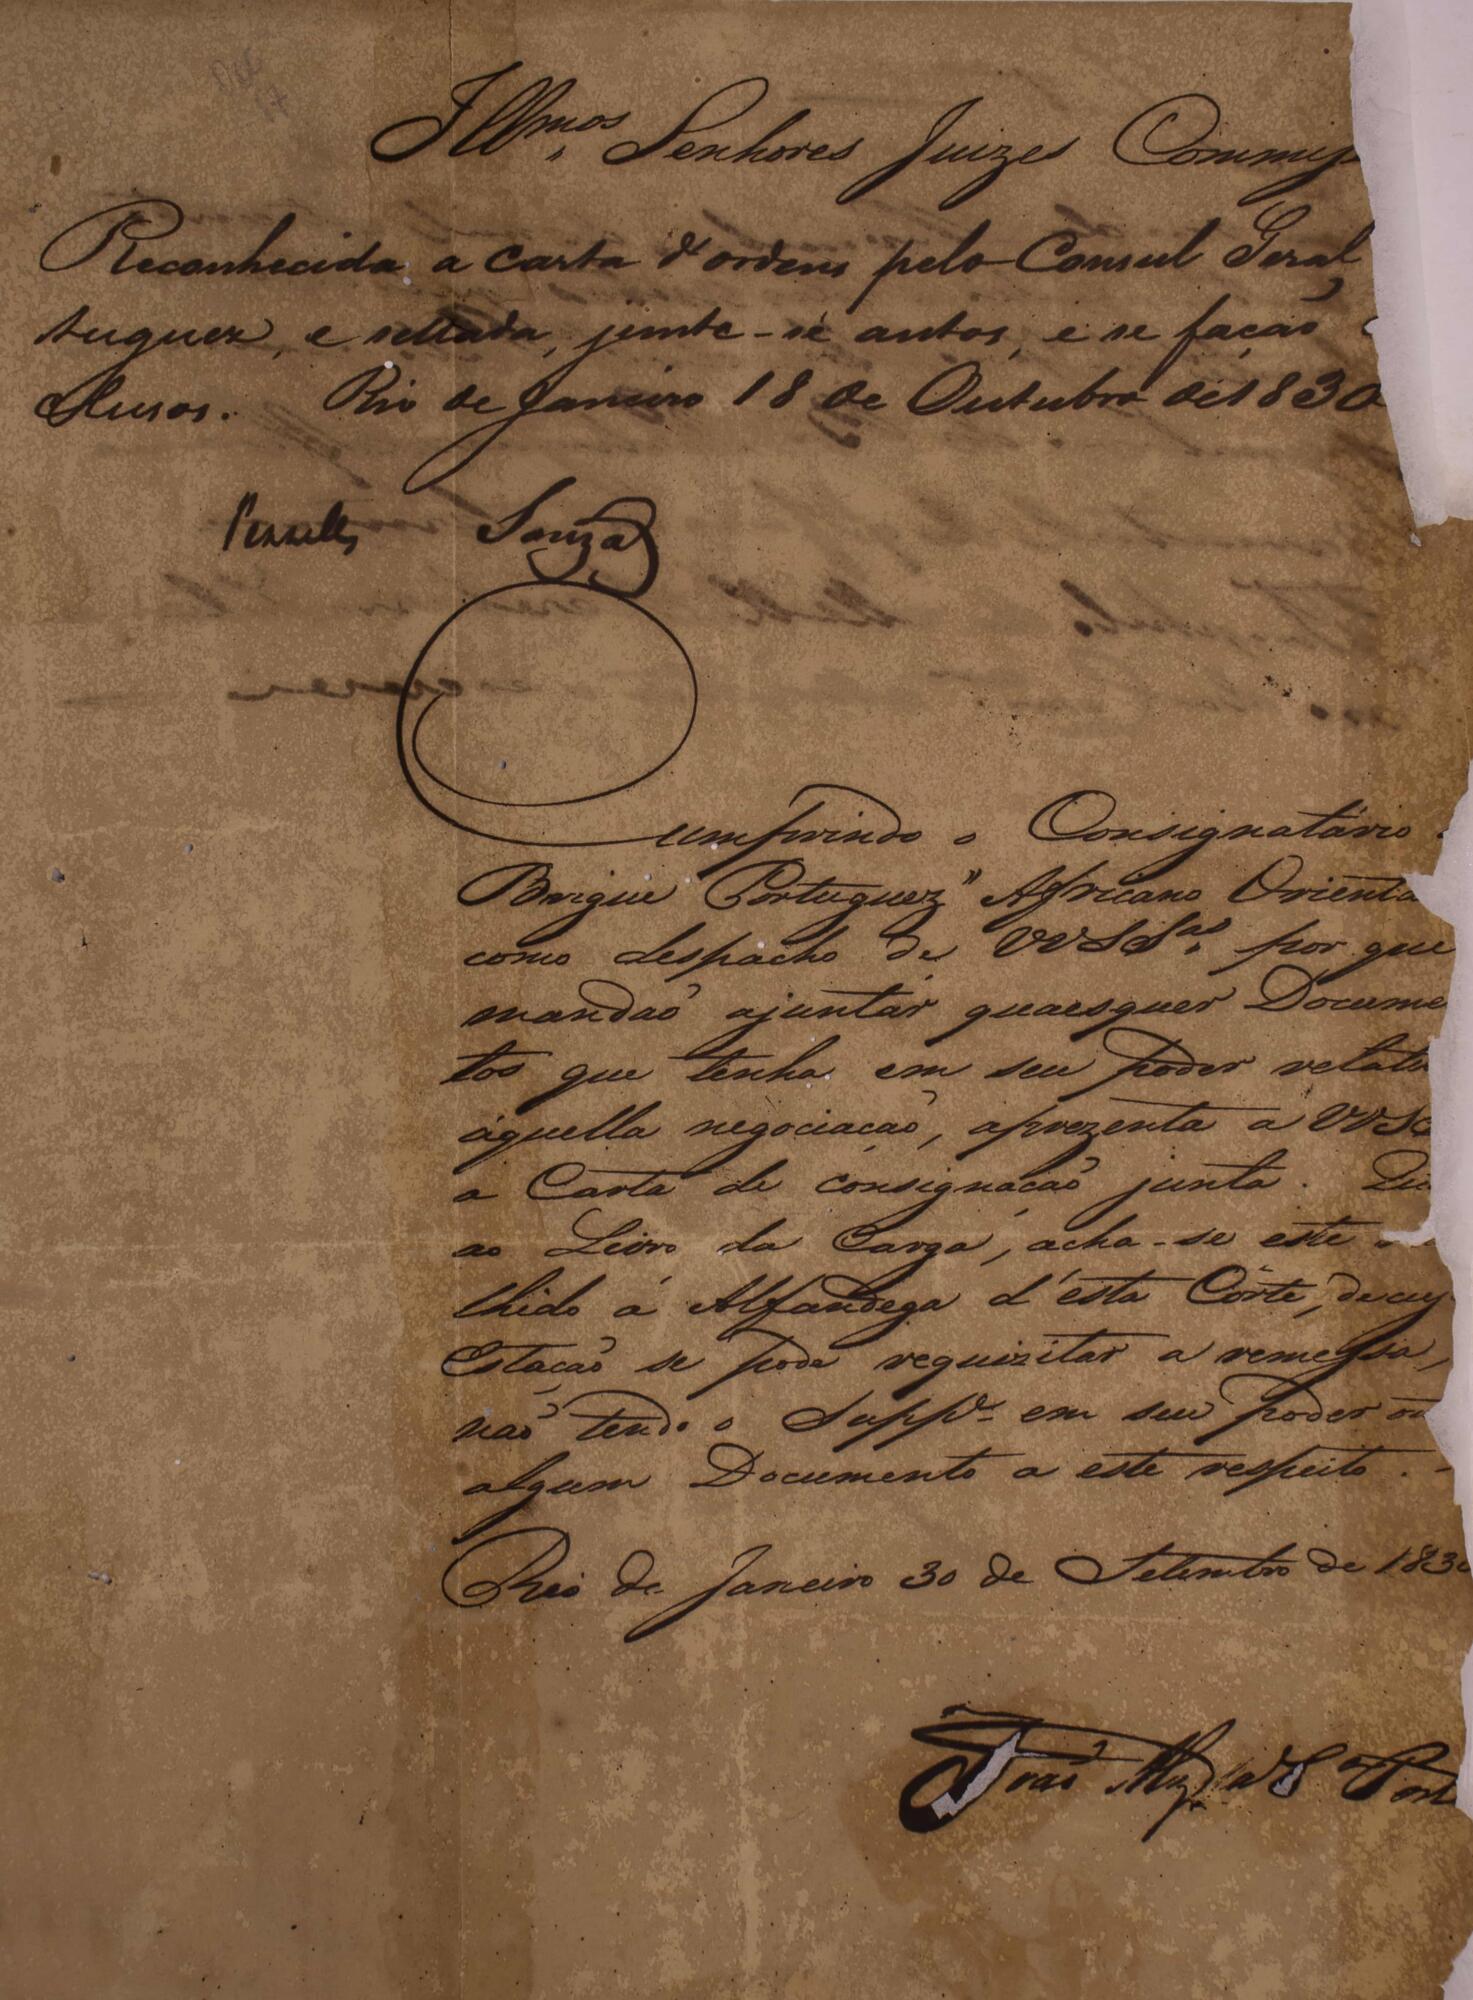 Illmos Senhores Juizes Commiss
Reconhecida a carta d'ordens pelo Consul Geral
tuguez, e sellada, junte-se autos, e se fação
clusos. Rio de Janeiro 18 de Outubro de 1830
Souza
Cumprindo o Consignatário
Brigue Portuguez "Africano Orienta
como despacho de VVSSas por que
mandaõ ajuntár quaesquer Docume
tos que tenha em seu poder relati
áquella negociaçaõ, aprezenta a VVSS
a Carta de consignaçaõ junta.
ao Livro da Carga, acha-se este
lhido á Alfandega d'esta Côrte, de cuj
Estaçaõ se pode requizitar a remessa,
naõ tendo o Suppe em seu poder ou
algum Documento a este respeito. -
Rio de Janeiro 30 de Setembro de 1830